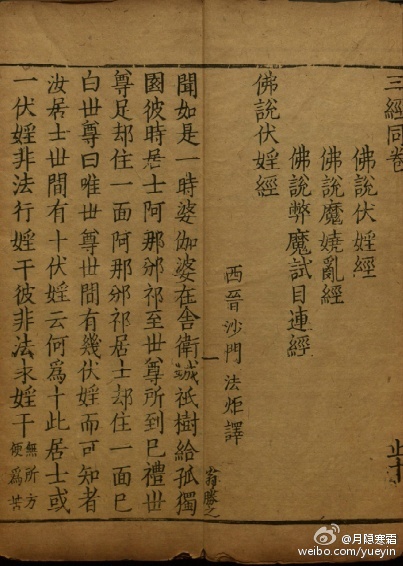 三經同卷 止十
佛說伏婬經
佛說魔嬈亂經
佛說弊魔試目連經
佛說伏婬經
西晉沙門法炬譯
聞如是一時婆伽婆在舍衛城祇樹給孤獨
國彼時居士阿那邠祁至世尊所到已禮世
尊足却住一面阿那邠祁居士却住一面已
白世尊曰唯世尊世間有幾伏婬而可知者
汝居士世間有十伏婬云何為十此居士或
一伏婬非法行婬干彼非法求婬干無所方便為苦
一
翁勝之
@月隐寒霜
weibo.com/yueyin